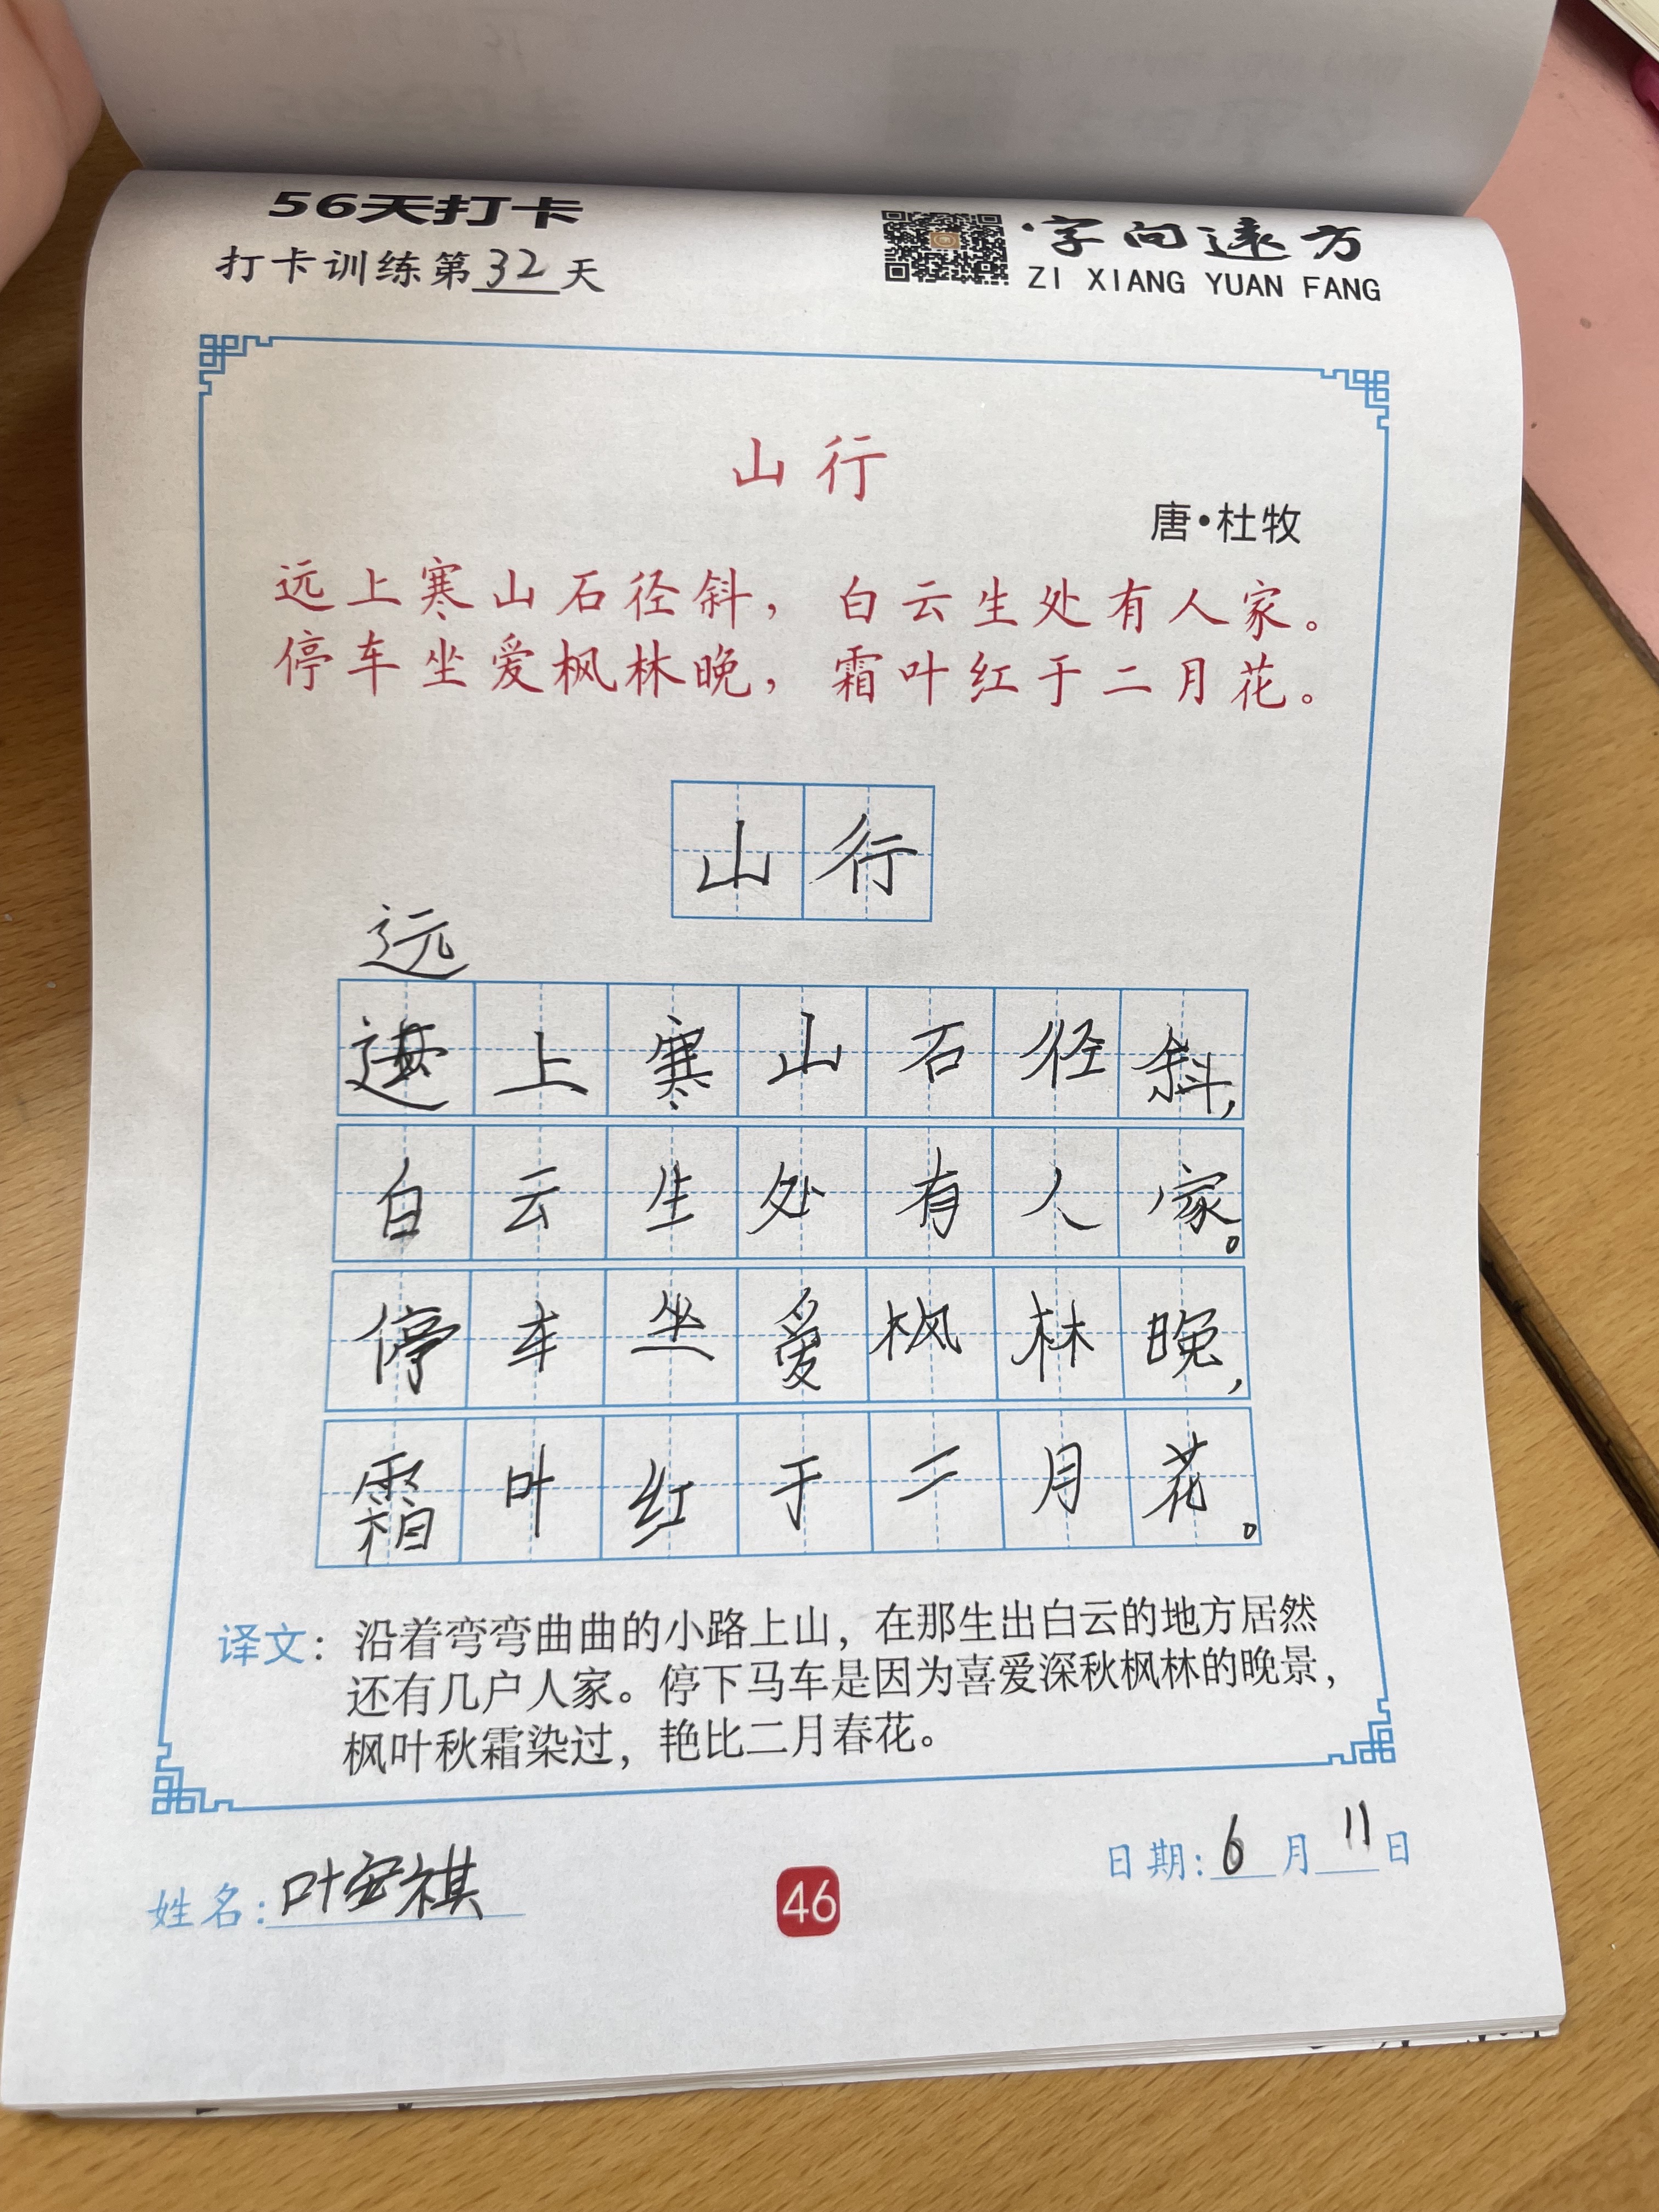 56天打卡
打卡训练第32天
字向远方
ZI XIANG YUAN FANG
山行
唐·杜牧
远上寒山石径斜，白云生处有人家。
停车坐爱枫林晚，霜叶红于二月花。
山行
远
上寒山石径斜，
白云生处有人家。
停车坐爱枫林晚，
霜叶红于二月花。
译文：沿着弯弯曲曲的小路上山，在那生出白云的地方居然
还有几户人家。停下马车是因为喜爱深秋枫林的晚景，
枫叶秋霜染过，艳比二月春花。
姓名：叶安祺
46
日期：6月11日